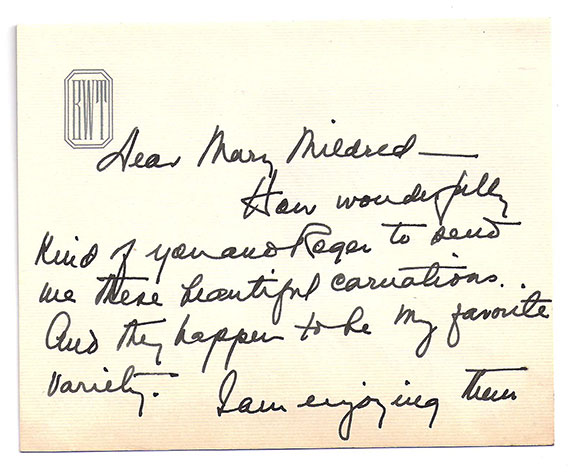 RWT
Dear Mary Mildred—
How wonderfully
kind of you and Roger to send
me these beautiful carnations.
And they happen to be my favorite
variety.
I am enjoying them